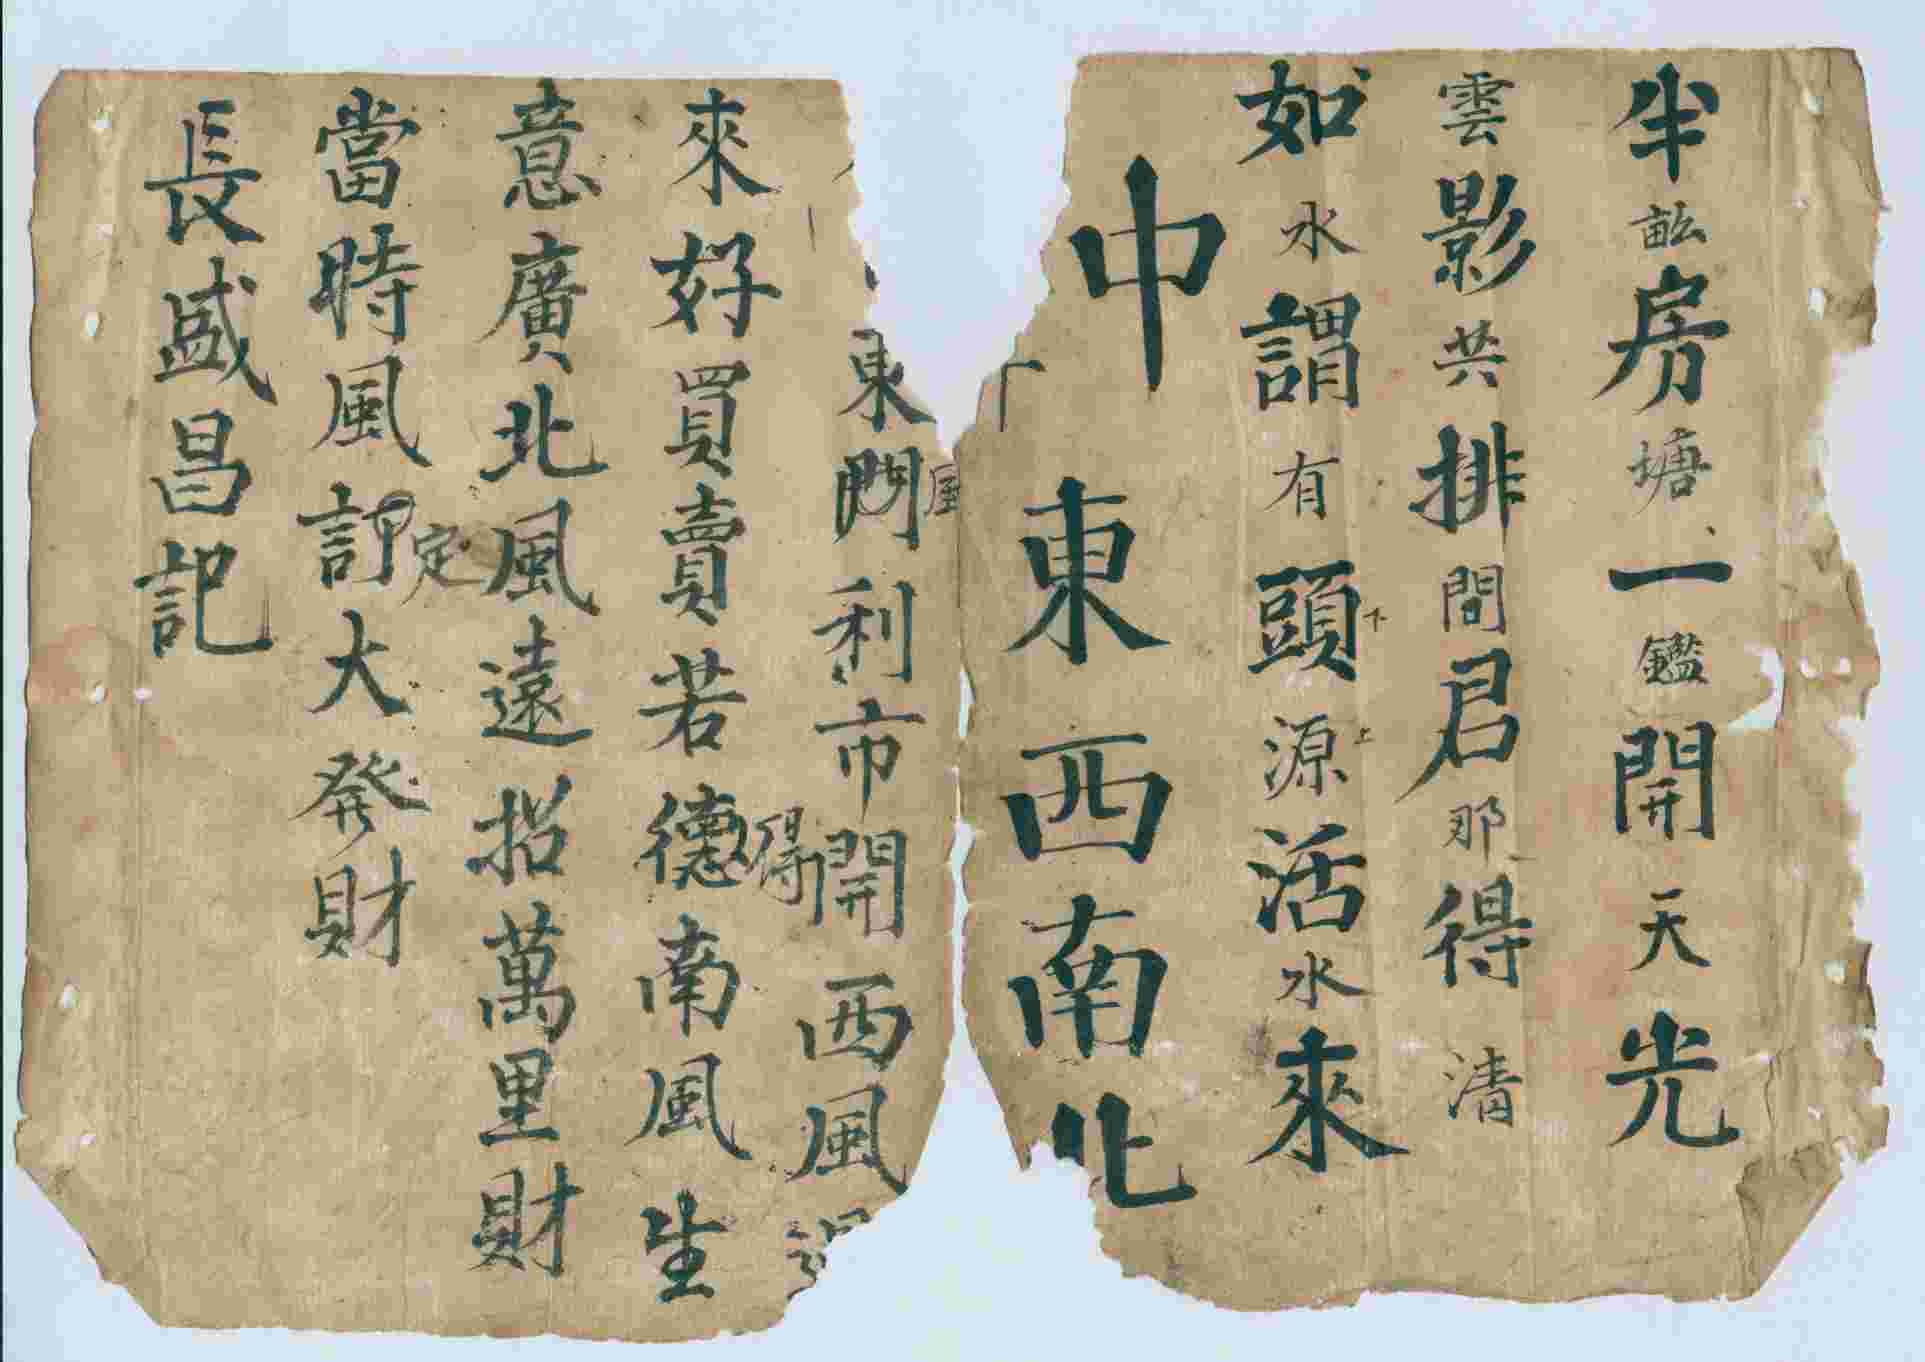 半畝房塘一鑑開天光
雲影共排間君那得清
如水謂有頭下源上活水來
中
東西南北
東門風利市開西風
來好買賣若德得南風生
意廣北風遠招萬里財
當時風訂定大發財
長盛昌記